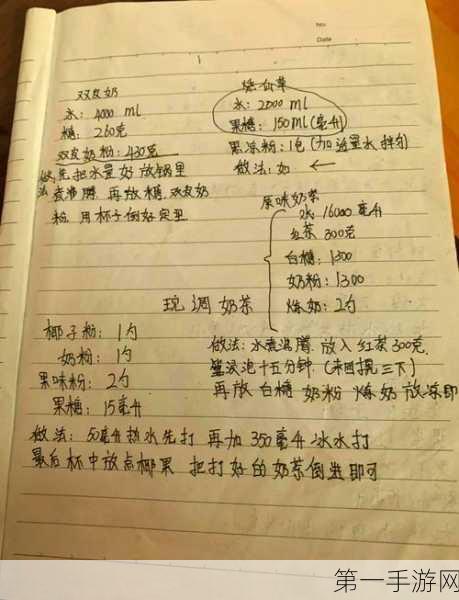 No
Date
双皮奶
水: 4000 ml
糖: 260克
双皮奶粉: 430克
做 先把水量好放锅里
法 煮沸腾 再放糖.双皮奶
粉 用杯子倒好定型
烧仙草
水: 2000 ml
果糖: 150ml (毫升)
黑冻粉: 1包 (加适量水拌匀)
做法: 如 ←
原味奶茶
水 16000 毫升
红茶 300克
白糖: 1300
奶粉: 1300
炼奶: 2勺
做法: 水煮沸腾 放入红茶300克.
浸泡十五分钟. (来回 三下)
再放白糖 奶粉 炼奶 放凉即
现调奶茶
椰子粉: 1勺
奶粉: 1勺
果味粉: 2勺
果糖: 15毫升
做法: 50毫升热水先打 再加350毫升冰水打
最后杯中放点椰果 把打好的奶茶倒进即可
第一手游网